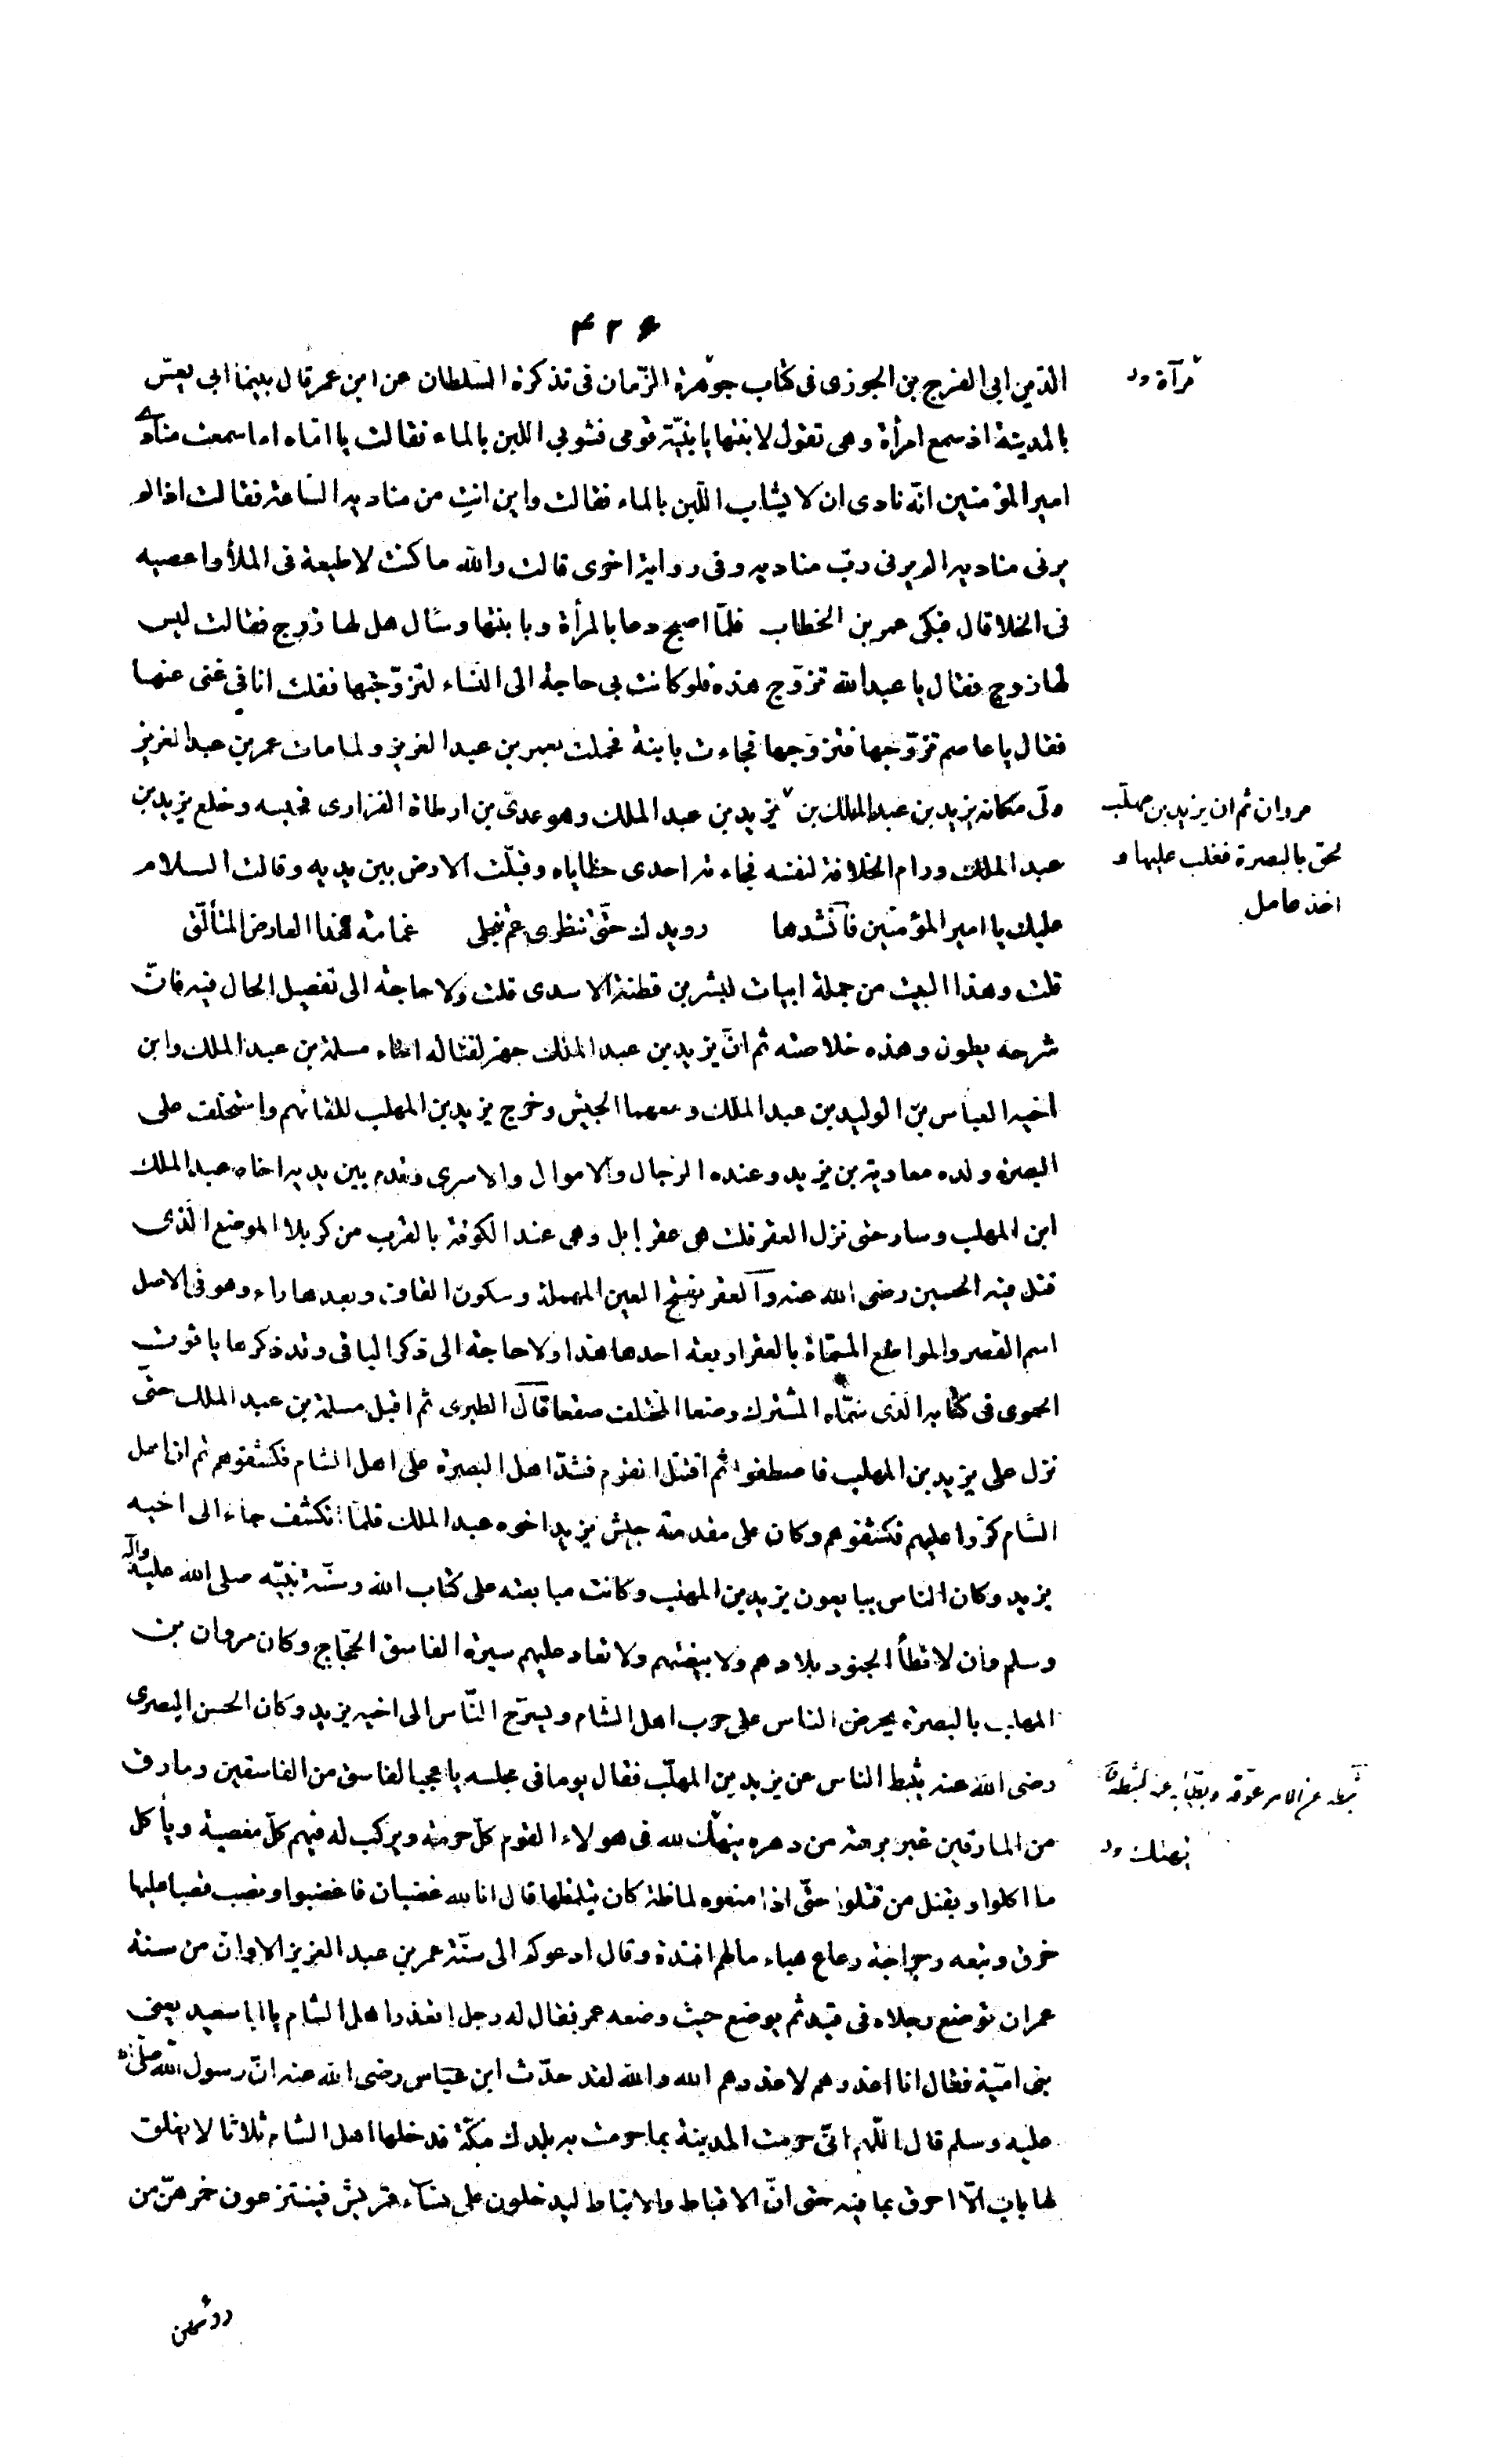 ٤٢٦
الدين ابى الفرج بن الجوزى فى كتاب جوهرة الزّمان فى تذكرة السّلطان عن ابن عمر قال بينما ابى يعسّ
مرآة ود
بالمدينة اذ سمع امرأة وهى تقول لابنتها يا بنيّة قومى فشوبى اللبن بالماء فقالت يا امّاه اما سمعت منادى
امير المؤمنين انّه نادى ان لا يشاب اللّبن بالماء فقالت واين انتِ من مناديه السّاعة فقالت اذا لم
يرنى مناديه الم يرنى ربّ مناديه وفى رواية اخرى قالت والله ما كنت لاطيعه فى الملأ واعصيه
فى الخلا قال فبكى عمر بن الخطاب فلمّا اصبح دعا بالمرأة وبابنتها وسأل هل لها زوج فقالت ليس
لها زوج فقال يا عبد الله تزوّج هذه فلو كانت بى حاجة الى النّساء لتزوّجتها فقلت انا فى غنى عنها
فقال يا عاصم تزوّجها فتزوّجها فجاءت بابنة فحملت بعمر بن عبد العزيز ولما مات عمر بن عبد العزيز
ولّى مكانه يزيد بن عبد الملك بن يزيد بن عبد الملك وهو عدىّ بن ارطاة الفزارى فحبسه وخلع يزيد بن
مروان ثم ان يزيد بن مهلّب
لحق بالبصرة فغلب عليها و
اخذ عامل
عبد الملك ورام الخلافة لنفسه فجاءته احدى حظاياه وقبّلت الارض بين يديه وقالت السلام
عليك يا امير المؤمنين فأنشدها رويدك حتّى تنظرى عم تنجلى غمامة هذا العارض المتألّق
قلت وهذا البيت من جملة ابيات لبشر بن قطنة الاسدى قلت ولا حاجة الى تفصيل الحال فيه فانّ
شرحه يطول وهذه خلاصته ثم انّ يزيد بن عبد الملك جهز لقتاله اخاه مسلمة بن عبد الملك وابن
اخيه العباس بن الوليد بن عبد الملك ومعهما الجيش وخرج يزيد بن المهلب للقائهم واستخلف على
البصرة ولده معاوية بن يزيد وعنده الرجال والاموال والاسرى وقدم بين يديه اخاه عبد الملك
ابن المهلب وسار حتى نزل العقر قلت هى عقر بابل وهى عند الكوفة بالقرب من كربلا الموضع الّذى
قتل فيه الحسين رضى الله عنه والعقر بفتح العين المهملة وسكون القاف وبعدها راء وهو فى الاصل
اسم القصر والمواضع المسمّاة بالعقر اربعة احدها هذا ولا حاجة الى ذكر الباقى وقد ذكرها ياقوت
الحموى فى كتابه الّذى سمّاه المشترك وضعا المختلف صقعا قال الطبرى ثم اقبل مسلمة بن عبد الملك حتّى
نزل على يزيد بن المهلب فاصطفوا ثم اقتتل القوم فشدّ اهل البصرة على اهل الشام فكشفوهم ثم ان اهل
الشام كرّوا عليهم فكشفوهم وكان على مقدمته جيش يزيد اخوه عبد الملك فلمّا انكشف جاء الى اخيه
يزيد وكان الناس يبايعون يزيد بن المهلب وكانت مبايعته على كتاب الله وسنّة نبيّه صلى الله عليه وآله
وسلم وان لا تطأ الجنود بلادهم ولا بيضتهم ولا تعاد عليهم سيرة الفاسق الحجّاج وكان مروان بن
المهلب بالبصرة يحرض الناس على حرب اهل الشام ويسرّح النّاس الى اخيه يزيد وكان الحسن البصرى
رضى الله عنه يثبط الناس عن يزيد بن المهلّب فقال يوما فى مجلسه يا عجبا لفاسق من الفاسقين ومارق
ثبّطه عن الامر عوّقه وبطّأ به عنه كثبطه ق
من المارقين غبر برهة من دهره ينهتك لله فى هولاء القوم كلّ حرمة ويركب له فيهم كلّ معصية ويأكل
ينهتك ود
ما اكلوا ويقتل من قتلوا حتّى اذا منعوه لماظة كان يتلمظها قال انا لله غضبان فاغضبوا ونصب قصبا عليها
خرق وتبعه رجراجة رعاع هباء مالهم افئدة وقال ادعوكم الى سنّة عمر بن عبد العزيز الا وانّ من سنة
عمر ان توضع رجلاه فى قيد ثم يوضع حيث وضعه عمر فقال له رجل اتعذر اهل الشام يا ابا سعيد يعنى
بنى اميّة فقال انا اعذرهم لا عذرهم الله والله لقد حدّث ابن عبّاس رضى الله عنه انّ رسول الله صلى الله
عليه وسلم قال اللّهم انّى حرمت المدينة بما حرمت به بلدك مكّة فدخلها اهل الشام ثلاثا لا يغلق
لها باب الّا احرق بما فيه حتى انّ الاقباط والانباط ليدخلون على نساء قريش فينتزعون خمرهنّ من
رؤسهن